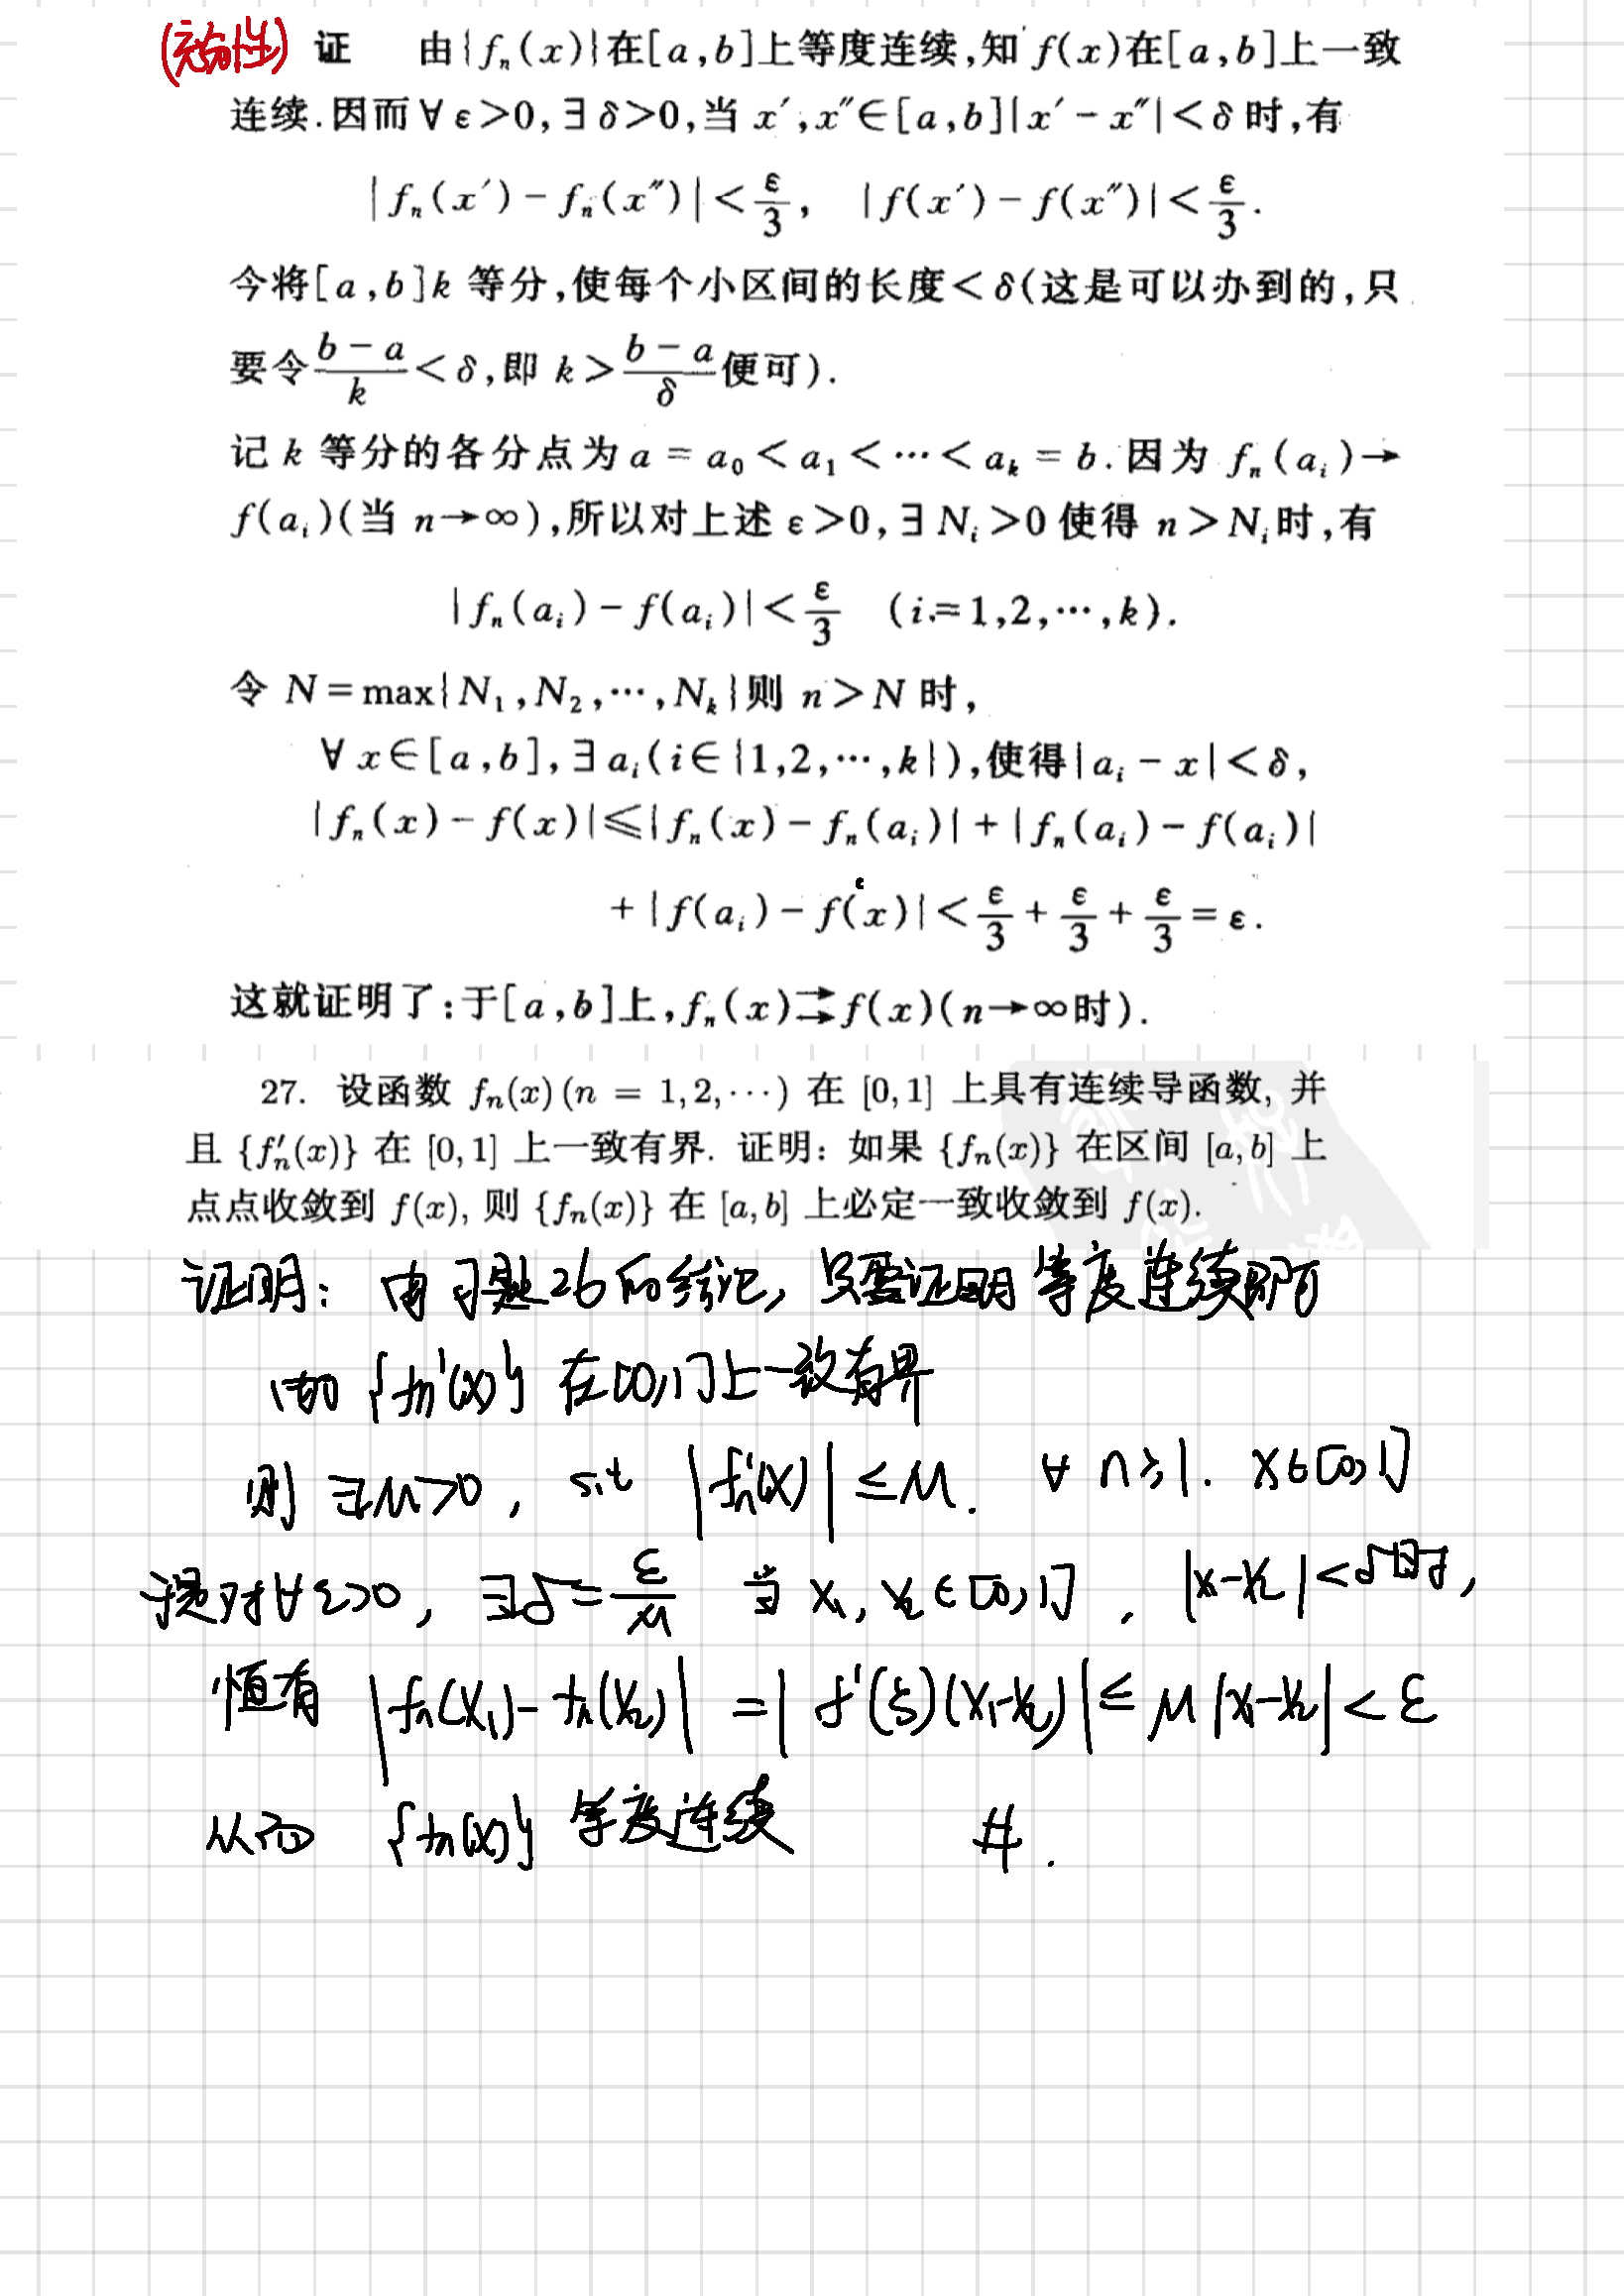 (充分性) 证 由{fₙ(x)}在[a,b]上等度连续,知f(x)在[a,b]上一致
连续.因而∀ε>0,∃δ>0,当x′,x″∈[a,b]|x′-x″|<δ时,有
|fₙ(x′)-fₙ(x″)|<ε/3, |f(x′)-f(x″)|<ε/3.
今将[a,b]k等分,使每个小区间的长度<δ(这是可以办到的,只
要令(b-a)/k<δ,即k>(b-a)/δ便可).
记k等分的各分点为a=a₀<a₁<⋯<aₖ=b.因为fₙ(aᵢ)→
f(aᵢ)(当n→∞),所以对上述ε>0,∃Nᵢ>0使得n>Nᵢ时,有
|fₙ(aᵢ)-f(aᵢ)|<ε/3 (i=1,2,⋯,k).
令N=max{N₁,N₂,⋯,Nₖ}则n>N时,
∀x∈[a,b],∃aᵢ(i∈{1,2,⋯,k}),使得|aᵢ-x|<δ,
|fₙ(x)-f(x)|≤|fₙ(x)-fₙ(aᵢ)|+|fₙ(aᵢ)-f(aᵢ)|
+|f(aᵢ)-f(x)|<ε/3+ε/3+ε/3=ε.
这就证明了:于[a,b]上,fₙ(x)⇉f(x)(n→∞时).
27. 设函数 fₙ(x)(n = 1,2,⋯) 在 [0,1] 上具有连续导函数, 并
且 {f′ₙ(x)} 在 [0,1] 上一致有界. 证明: 如果 {fₙ(x)} 在区间 [a,b] 上
点点收敛到 f(x), 则 {fₙ(x)} 在 [a,b] 上必定一致收敛到 f(x).
证明: 由习题26的结论, 只需证明等度连续即可
由 {fₙ′(x)} 在[0,1]上一致有界
则 ∃M>0, s.t |fₙ′(x)| ≤M. ∀ n≥1. x∈[0,1]
于是对∀ε>0, ∃δ=ε/M 当 x₁, x₂∈[0,1], |x₁-x₂|<δ时,
恒有 |fₙ(x₁)-fₙ(x₂)| =|f′(ξ)(x₁-x₂)|≤M|x₁-x₂|<ε
从而 {fₙ(x)} 等度连续 #.